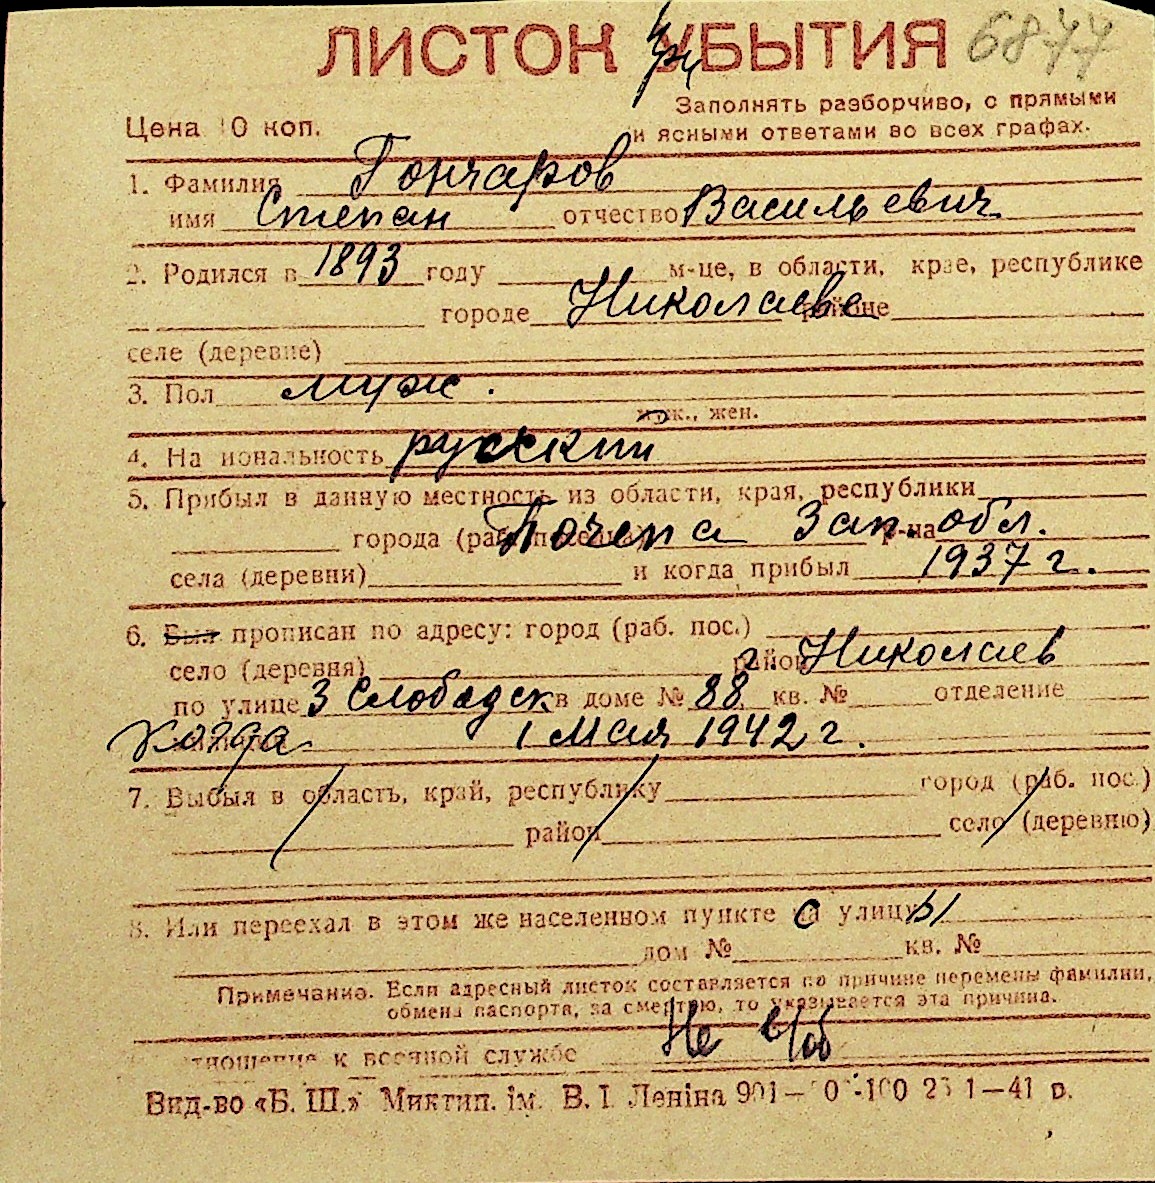 ЛИСТОК УБЫТИЯ 6877
при
Заполнять разборчиво, с прямыми
Цена 10 коп. и ясными ответами во всех графах.
1. Фамилия Гончаров
имя Степан отчество Васильевич
2. Родился в 1893 году м-це, в области, крае, республике
городе Николаеве районе
селе (деревне)
3. Пол муж.
муж., жен.
4. Национальность русский
5. Прибыл в данную местность из области, края, республики
города (раб. поселка) Почепа Зап. обл. р-на
села (деревни) и когда прибыл 1937 г.
6. Был прописан по адресу: город (раб. пос.)
село (деревня) район г. Николаев
по улице 3 Слободск в доме № 88 кв. № отделение
Когда 1 мая 1942 г.
7. Выбыл в область, край, республику город (раб. пос.)
район село (деревню)
8. Или переехал в этом же населенном пункте на с улицу ы
дом № кв. №
Примечание. Если адресный листок составляется по причине перемены фамилии,
обмена паспорта, за смертью, то указывается эта причина.
Отношение к военной службе Не в/об
Вид-во «Б. Ш.» Миктип. ім. В. І. Леніна 901— 100 23 1—41 р.